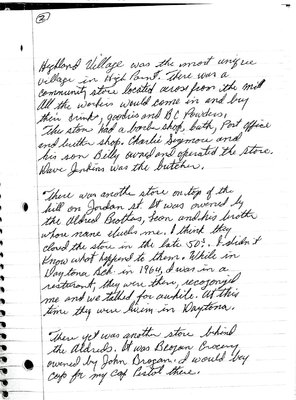 2
Highland Village was the most unique
village in High Point. There was a
community store located across from the mill
All the workers would come in and buy
their drinks, goodies and BC Powders.
The store had a barber shop, bath, Post office
and butter shop. Charlie Seymore and
his son Billy owned and operated the store.
Dave Jenkins was the butcher.
There was another store on top of the
hill on Jordan st. It was owened by
the Aldred Brothers, Leon and his brother
whose name eludes me. I think they
closed the store in the late 50s. I didn't
know what happend to them. While in
Daytona Bch in 1964, I was in a
resterant, they were there, recogonized
me and we talked for awhile. At this
time they were living in Daytona.
There yet was another store behind
the Aldreds. It was Brogan Grocery
owned by John Brogan. I would buy
caps for my cap Pistol there.